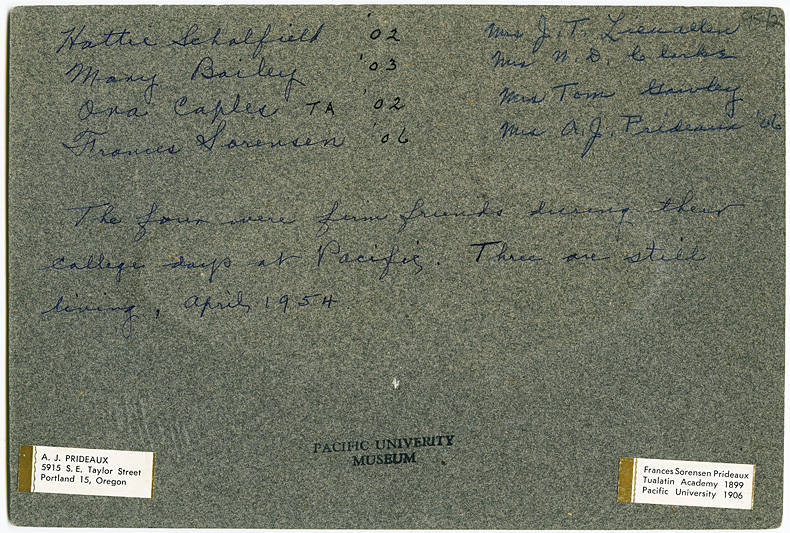 Hattie Scholfield '02 Mrs J. T. Lieuallen
Mary Bailey '03 Mrs W. D. Clarke
Ora Caples TA '02 Mrs Tom Gawley
Frances Sorensen '06 Mrs A. J. Prideaux '06
The four were firm friends during their
college days at Pacific. Three are still
living, April 1954
PACIFIC UNIVERITY
MUSEUM
A. J. PRIDEAUX
5915 S. E. Taylor Street
Portland 15, Oregon
Frances Sorensen Prideaux
Tualatin Academy 1899
Pacific University 1906